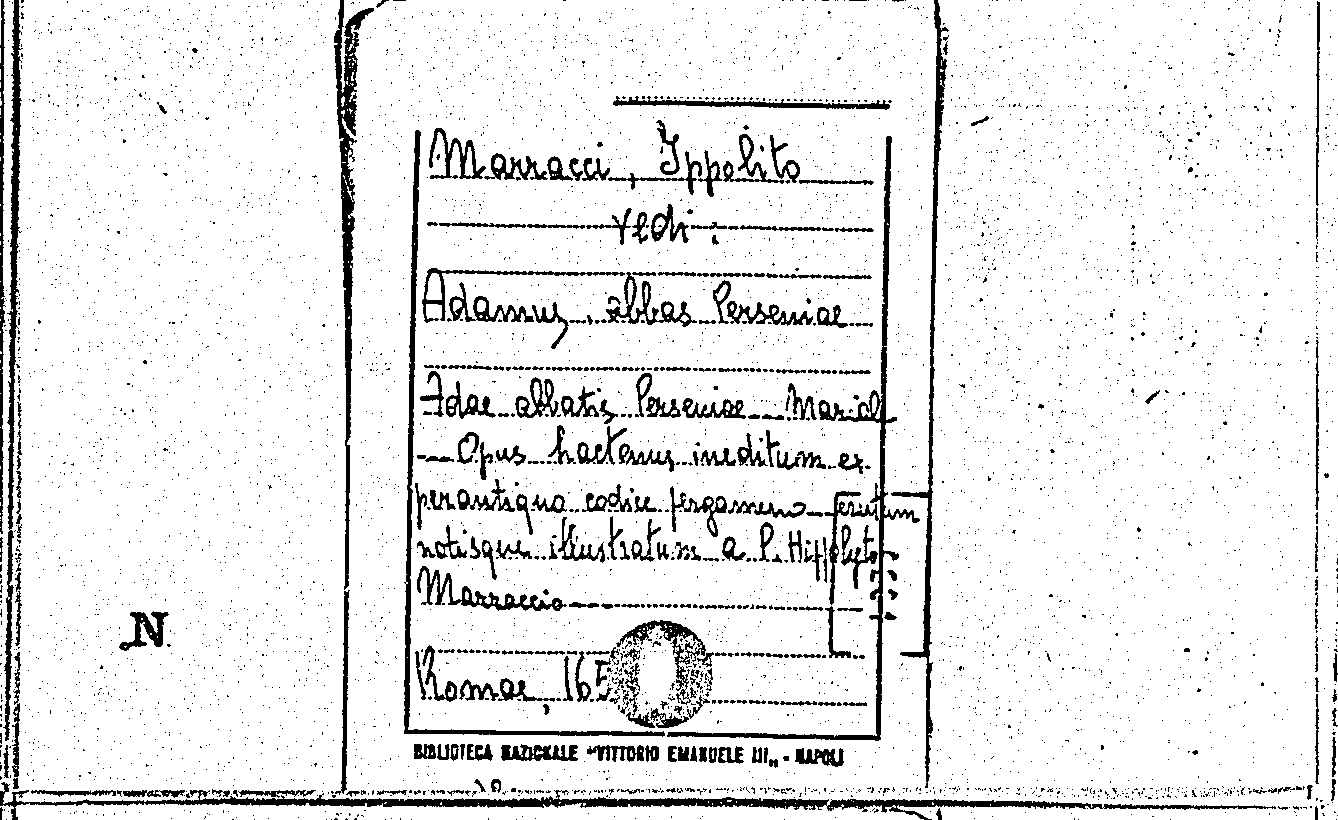 Marracci, Ippolito
vedi:
Adamus, abbas Perseniae
Adae abbatis Perseniae ... Marial
... Opus hactenus ineditum ex
perantiquo codice pergameno ... erutum
notisque illustratum a P. Hippolyto
Marraccio ...
Romae, 165
N
BIBLIOTECA NAZIONALE "VITTORIO EMANUELE III" - NAPOLI